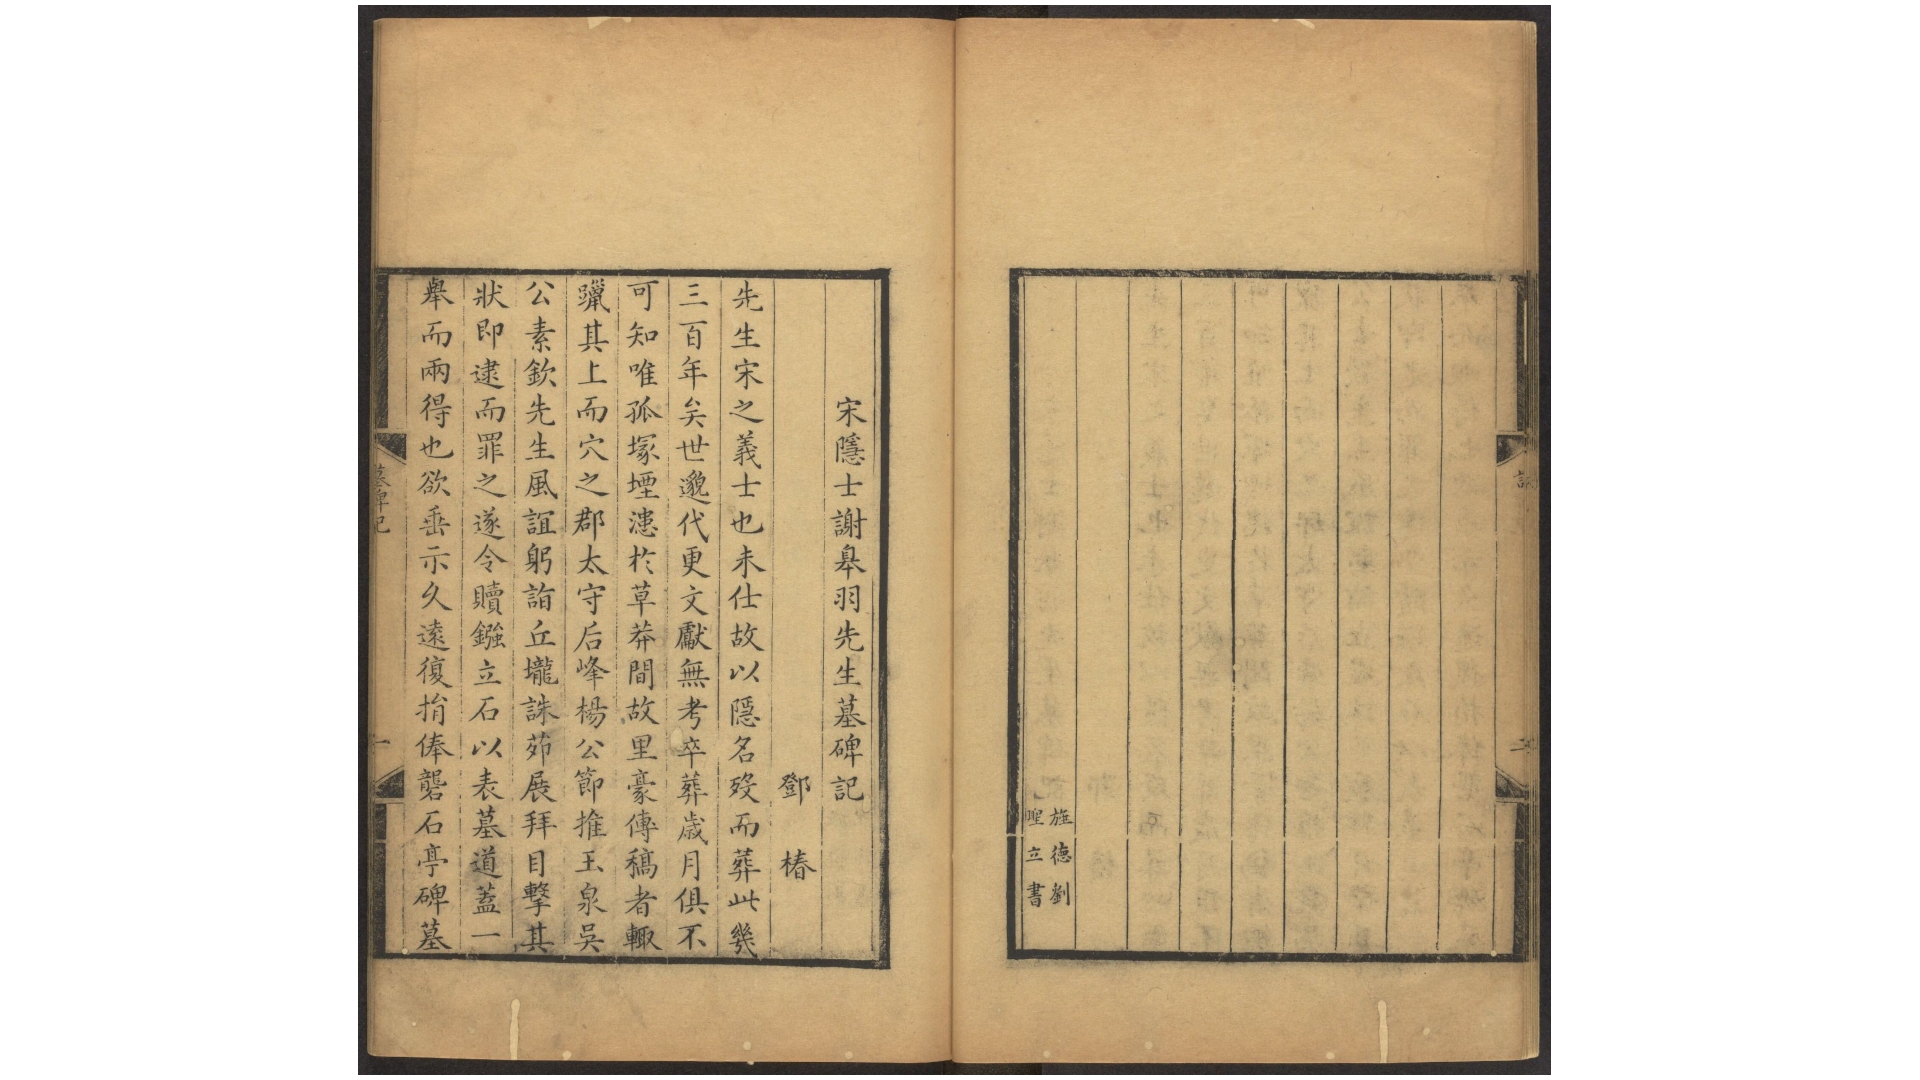 旌德劉
立書
宋隱士謝皋羽先生墓碑記
鄧椿
先生宋之義士也未仕故以隱名歿而葬此幾
三百年矣世邈代更文獻無考卒葬歲月俱不
可知唯孤塚堙漶於草莽間故里豪傳稿者輙
躐其上而穴之郡太守后峰楊公節推玉泉吳
公素欽先生風誼躬詣丘壠誅茆展拜目擊其
狀即逮而罪之遂令贖鏹立石以表墓道蓋一
舉而兩得也欲垂示久遠復捐俸礱石亭碑墓
墓碑記
一